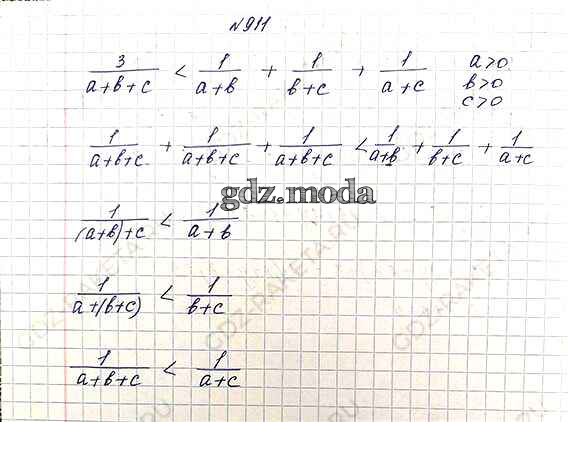 №911
3/(a+b+c) < 1/(a+b) + 1/(b+c) + 1/(a+c) a>0
b>0
c>0
1/(a+b+c) + 1/(a+b+c) + 1/(a+b+c) < 1/(a+b) + 1/(b+c) + 1/(a+c)
gdz.moda
1/((a+b)+c) < 1/(a+b)
1/(a+(b+c)) < 1/(b+c)
1/(a+b+c) < 1/(a+c)
GDZ-RAKETA.RU